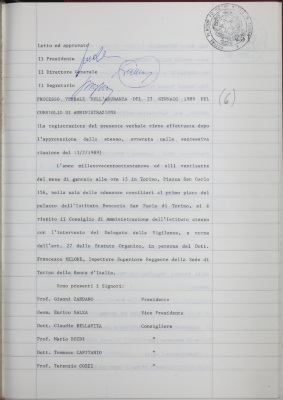 Letto ed approvato
Il Presidente
Il Direttore Generale
Il Segretario
(6)
PROCESSO VERBALE DELL'ADUNANZA DEL 27 GENNAIO 1989 DEL
CONSIGLIO DI AMMINISTRAZIONE
(La registrazione del presente verbale viene effettuata dopo
l'approvazione dello stesso, avvenuta nella successiva
riunione del
L'anno millenovecentottantanove ed alli ventisette
del mese di gennaio alle ore 15 in Torino, Piazza San Carlo
156, nella sala delle adunanze consiliari al primo piano del
palazzo dell'Istituto Bancario San Paolo di Torino, si è
riunito il Consiglio di Amministrazione dell'Istituto stesso
con l'intervento del Delegato della Vigilanza, a norma
dell'art. 27 dello Statuto Organico, in persona del Dott.
Francesco Ispettore Superiore Reggente della Sede di
Torino della Banca d'Italia.
Sono presenti i Signori:
Prof. Gianni ZANDANO Presidente
Comm. Enrico SALZA Vice Presidente
Dott. Claudio BELLAVITA Consigliere
Prof. Mario "
Dott. Tommaso CAPITANIO "
Prof. Terenzio COZZI "